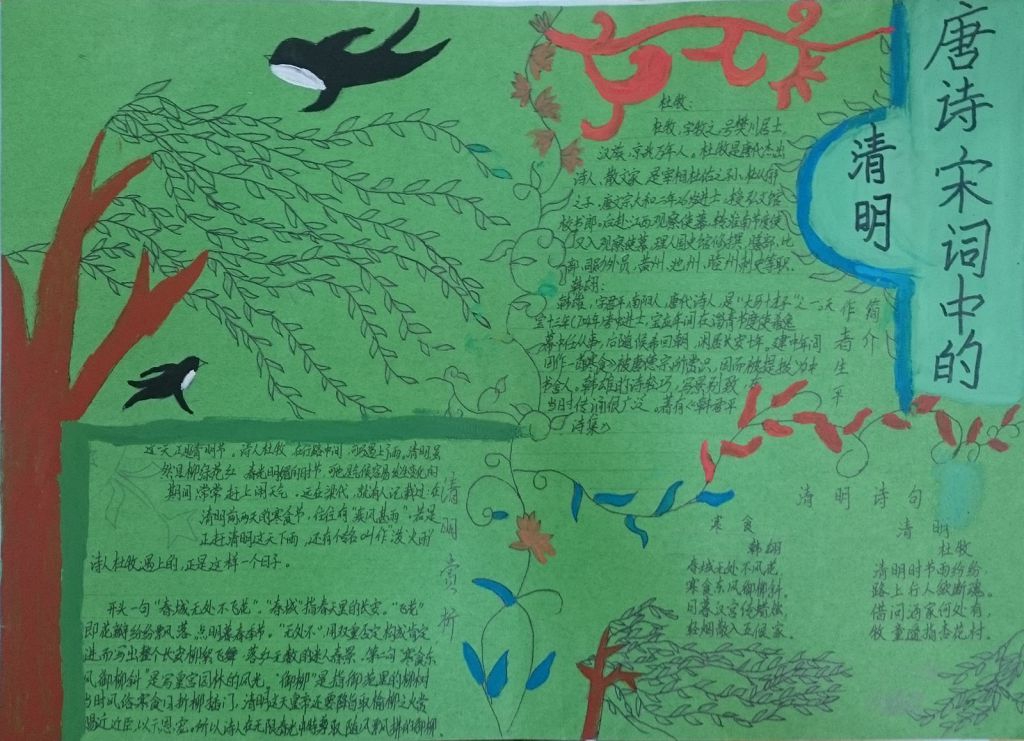 唐诗宋词中的
清明
作者生平
简介
杜牧:
杜牧,字牧之,号樊川居士,
汉族,京兆万年人。杜牧是唐代杰出
诗人、散文家,是宰相杜佑之孙,杜从郁
之子,唐文宗大和二年26岁中进士,授弘文馆
校书郎。后赴江西观察使幕,转淮南节度使
又入观察使幕,理人国史馆修撰,膳部、比
部、司勋外员、黄州、池州、睦州刺史等职。
韩翃:
韩翃,字君平,南阳人,唐代诗人,是“大历十才子”之一。天
宝十三年(754年)考中进士,宝应年间在淄青节度使
幕府任从事,后随侯希回朝,闲居长安十年。建中年间
因作一首《寒食》被唐德宗所赏识,因而被提拔为中
书舍人。韩 的诗轻巧,写景别致,在
当时传诵很广泛。著有《韩君平
诗集》
清明赏析
这一天正是清明节。诗人杜牧 在行路中间,可巧遇上了雨。清明虽
然是柳绿花红、春光明媚的时节,可也是气候容易发生变化的
期间,常常赶上闹天气。远在梁代,就有人记载过:在
清明前两天的寒食节,往往有“疾风甚雨”。若是
正赶清明这天下雨,还有个名 叫作“泼火雨”
诗人杜牧遇上的,正是这样一个日子。
开头一句“春城无处不飞花”。“春城”指春天里的长安。“飞花”
即花瓣纷纷飘落,点明暮春季节。“无处不”,用双重否定构成肯定
进而写出整个长安柳絮飞舞,落红无数的迷人春景。第二句“寒食东
风御柳斜”是写皇宫园林的风光。“御柳”是指御苑里的柳树
当时风俗寒食日折柳插门,清明这天皇帝还要降旨取榆柳之火赏
赐近臣,以示恩宠。所以诗人在无限春光中特剪取随风飘拂的御柳
清明诗句
寒食
韩翃
春城无处不飞花,
寒食东风御柳斜。
日暮汉宫传蜡烛,
轻烟散入五侯家。
清明
杜牧
清明时节雨纷纷,
路上行人欲断魂。
借问酒家何处有
牧童遥指杏花村。